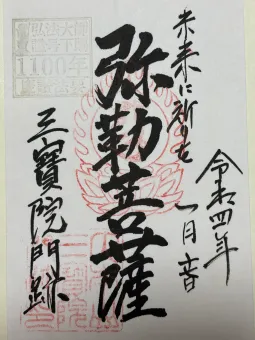 未来に祈りを
令和四年
一月六日
弥勒菩薩
三寶院門跡
弘法大師
1100年